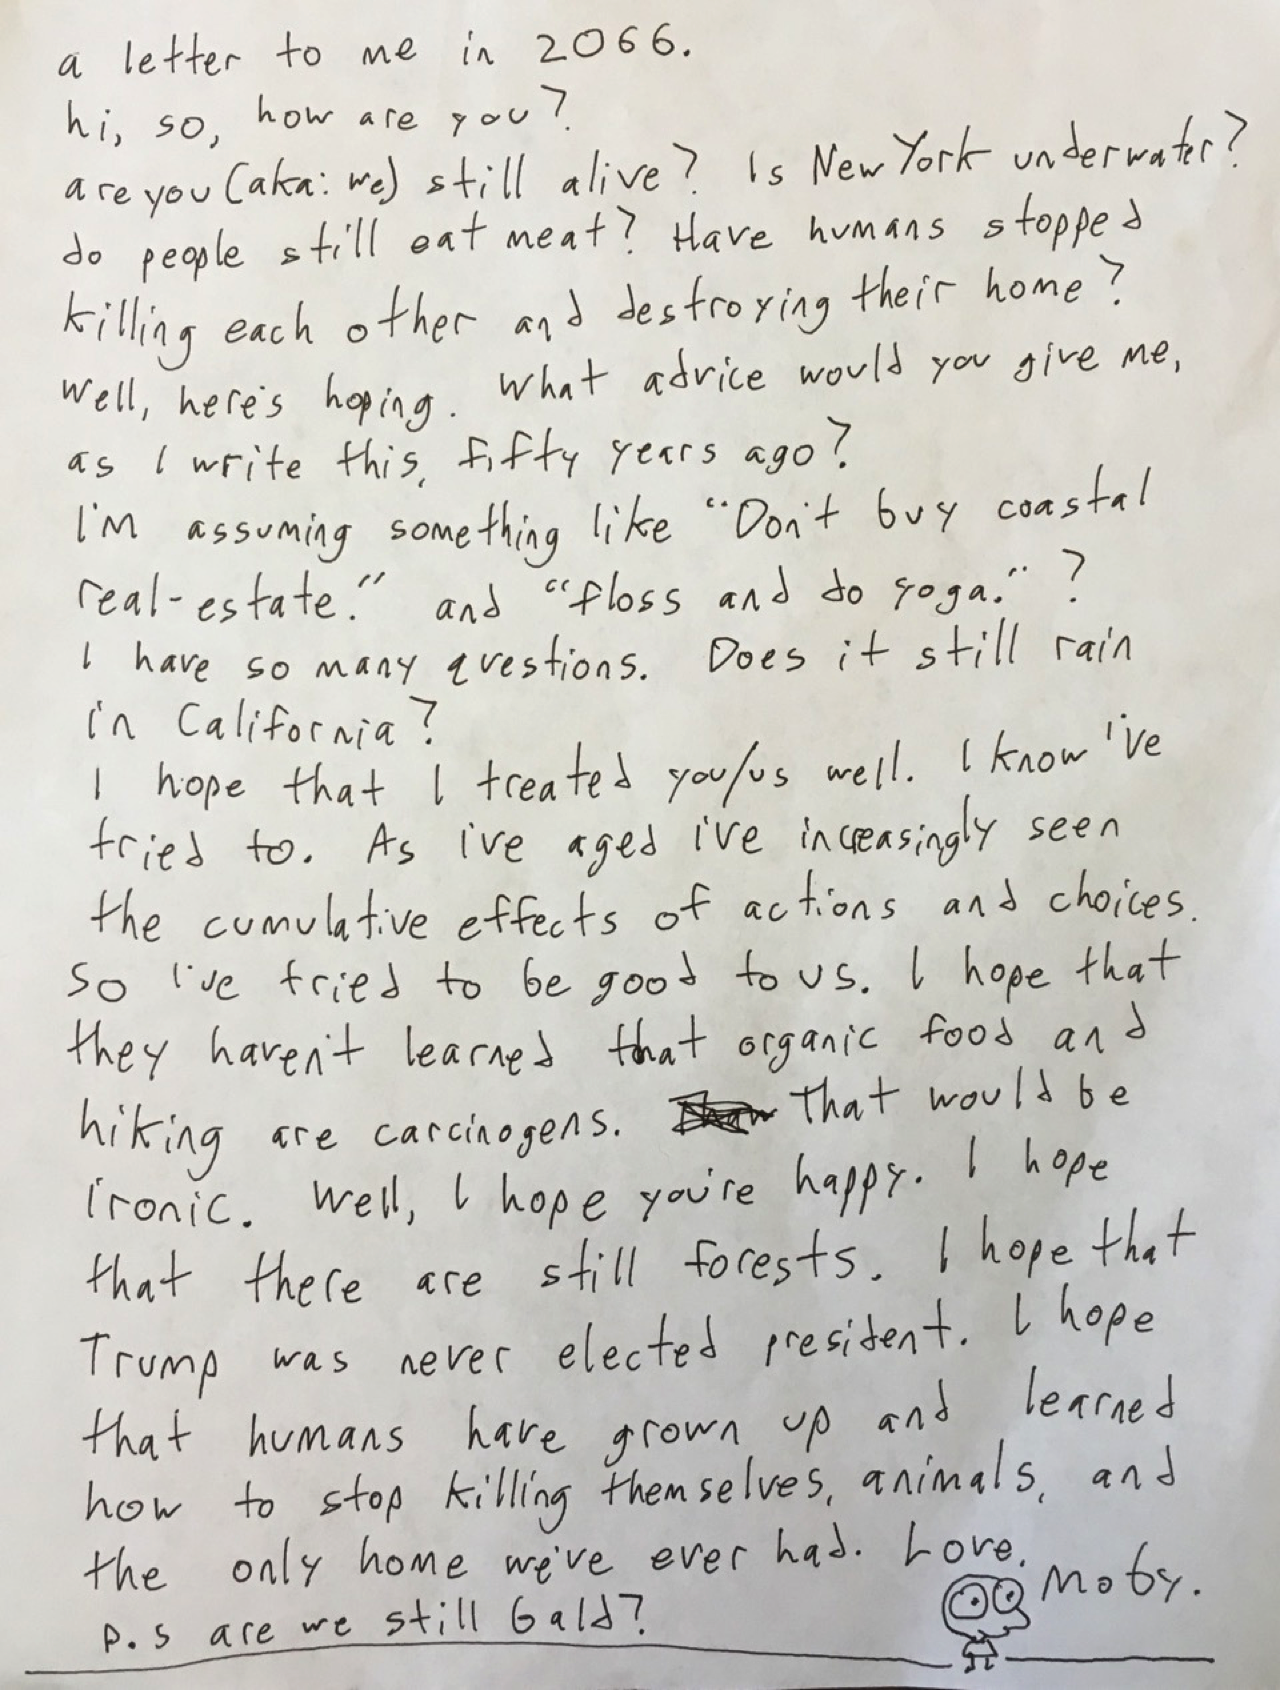 a letter to me in 2066.
hi, so, how are you?
are you (aka: we) still alive? Is New York underwater?
do people still eat meat? Have humans stopped
killing each other and destroying their home?
Well, here's hoping. What advice would you give me,
as I write this, fifty years ago?
I'm assuming something like "Don't buy coastal
real-estate." and "floss and do yoga." ?
I have so many questions. Does it still rain
in California?
I hope that I treated you/us well. I know i've
tried to. As i've aged i've increasingly seen
the cumulative effects of actions and choices.
So I've tried to be good to us. I hope that
they haven't learned that organic food and
hiking are carcinogens. That would be
ironic. Well, I hope you're happy. I hope
that there are still forests. I hope that
Trump was never elected president. I hope
that humans have grown up and learned
how to stop killing themselves, animals, and
the only home we've ever had. Love,
Moby.
p.s are we still bald?